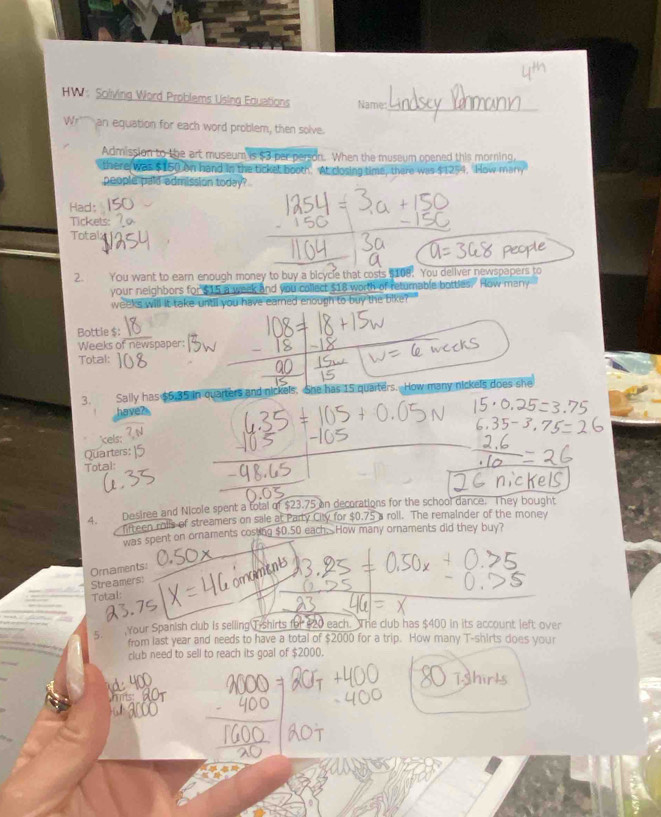 4th
HW: Solving Word Problems Using Equations
Name: Lindsey
an equation for each word problem, then solve.
Admission to the art museum is $3 per person. When the museum opened this morning,
there was $150 on hand in the ticket booth. At closing time, there was $1254. How many
people paid admission today?
Had: 150
Tickets: ?a
Total: $1254
1254 = 3a + 150
- 150 - 150
1104 3a
3 a
a = 368 people
2. You want to earn enough money to buy a bicycle that costs $108. You deliver newspapers to
your neighbors for $15 a week and you collect $18 worth of returnable bottles. How many
weeks will it take until you have earned enough to buy the bike?
Bottle $: 18
Weeks of newspaper: 15w
Total: 108
108 = 18 + 15w
- 18 - 18
90 15w
15 15
w = 6 weeks
3. Sally has $5.35 in quarters and nickels. She has 15 quarters. How many nickels does she
have?
?N
Quarters: 15
Total:
6.35
6.35 = 105 + 0.05N
-105 -105
-98.65
0.05
15 · 0.25 = 3.75
6.35 - 3.75 = 26
2.6
.10 = 26
26 nickels
4. Desiree and Nicole spent a total of $23.75 on decorations for the school dance. They bought
fifteen rolls of streamers on sale at Party City for $0.75 a roll. The remainder of the money
was spent on ornaments costing $0.50 each. How many ornaments did they buy?
Ornaments: 0.50x
Streamers:
Total:
23.75
x = 46 ornaments
23.25 = 0.50x + 0.75
0.75 - 0.75
23 46 = x
5. Your Spanish club is selling T-shirts for $20 each. The club has $400 in its account left over
from last year and needs to have a total of $2000 for a trip. How many T-shirts does your
club need to sell to reach its goal of $2000.
400
20T
2000
2000 = 20T + 400
- 400 - 400
1600 20T
20
80 Tshirts